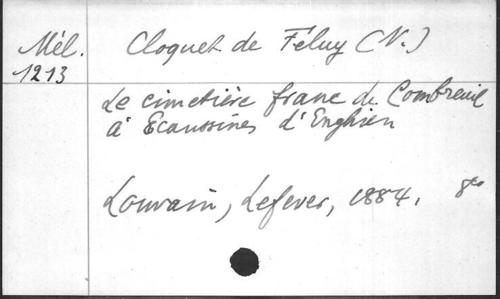 Mél. Cloquet de Feluy (N.)
1213
Le cimetière franc de Combreuil
à Ecaussines d'Enghien
Louvain, Lefever, 1884. 8vo